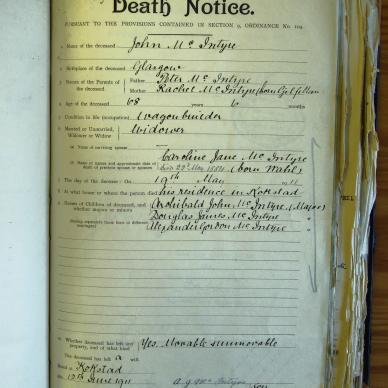 Death Notice.
PURSUANT TO THE PROVISIONS CONTAINED IN SECTION 9, ORDINANCE No. 104.
1 Name of the deceased John Mc Intyre
2 Birthplace of the deceased Glasgow
3 Names of the Parents of the deceased Father Peter Mc Intyre
Mother Rachel Mc Intyre (born
4 Age of the deceased 68 years months
5 Condition in life (occupation) Wagonbuilder
6 Married or Unmarried, Widower or Widow Widower
(a) Name of surviving spouse
(b) Name of spouse and approximate date of death of predeceased spouse or spouses Caroline Jane Mc Intyre
22nd May (born
7 The day of the decease: On 19th May 11
8 At what house or where the person died his residence in Kokstad
9 Names of Children of deceased, and whether majors or minors Archibald John Mc Intyre (Major)
Douglas James Mc Intyre "
Alexander Gordon Mc Intyre "
10 Whether deceased has left any property, and of what kind Yes. Movable &
The deceased has left a will
Dated at Kokstad
12th June 1911